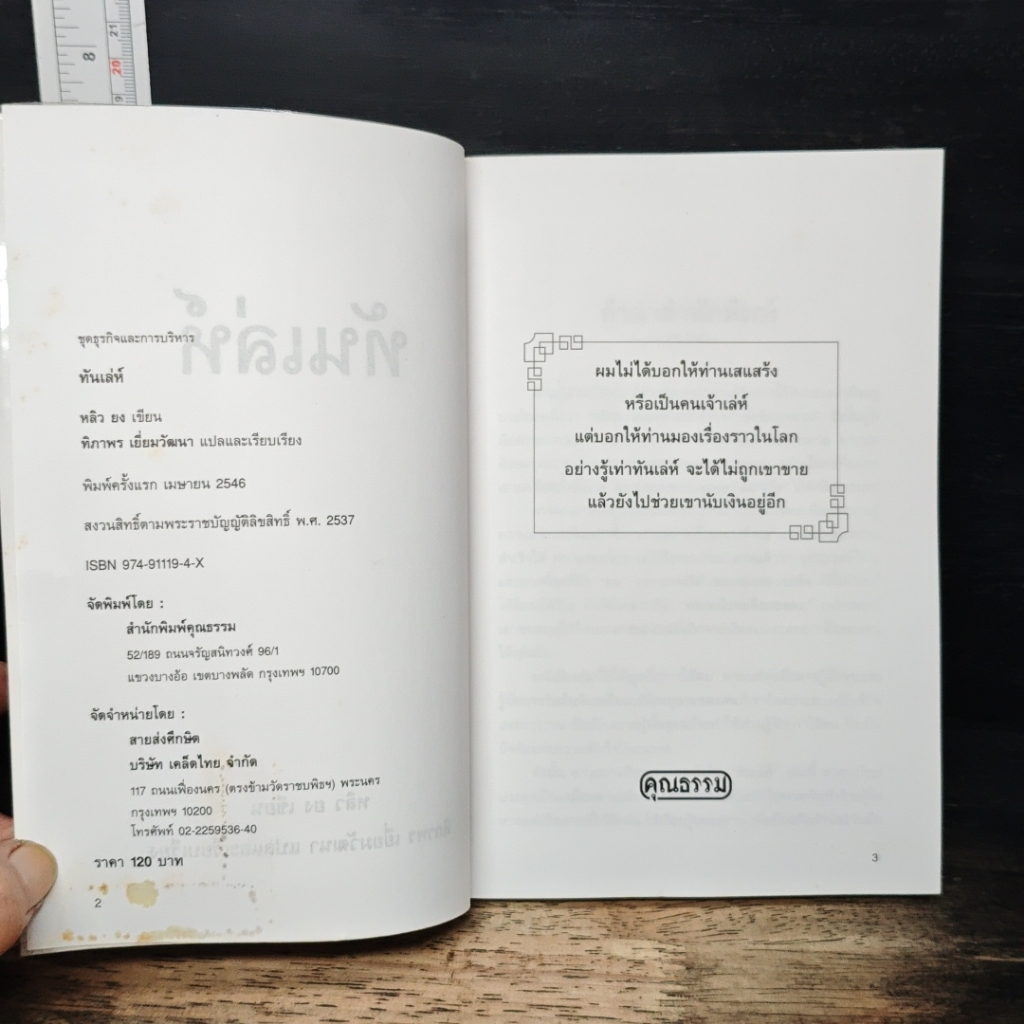 8
21
20
9
ชุดธุรกิจและการบริหาร
ทันเล่ห์
หลิว ยง เขียน
ทิภาพร เยี่ยมวัฒนา แปลและเรียบเรียง
พิมพ์ครั้งแรก เมษายน 2546
สงวนสิทธิ์ตามพระราชบัญญัติลิขสิทธิ์ พ.ศ. 2537
ISBN 974-91119-4-X
จัดพิมพ์โดย :
สำนักพิมพ์คุณธรรม
52/189 ถนนจรัญสนิทวงศ์ 96/1
แขวงบางอ้อ เขตบางพลัด กรุงเทพฯ 10700
จัดจำหน่ายโดย :
สายส่งศึกษิต
บริษัท เคล็ดไทย จำกัด
117 ถนนเฟื่องนคร (ตรงข้ามวัดราชบพิธฯ) พระนคร
กรุงเทพฯ 10200
โทรศัพท์ 02-2259536-40
ราคา 120 บาท
2
ผมไม่ได้บอกให้ท่านเสแสร้ง
หรือเป็นคนเจ้าเล่ห์
แต่บอกให้ท่านมองเรื่องราวในโลก
อย่างรู้เท่าทันเล่ห์ จะได้ไม่ถูกเขาขาย
แล้วยังไปช่วยเขานับเงินอยู่อีก
คุณธรรม
3